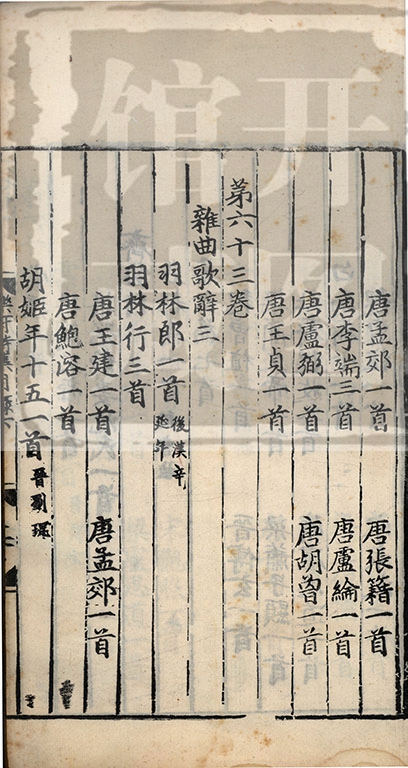 唐孟郊一首 唐張籍一首
唐李端三首 唐盧綸一首
唐盧弼一首 唐胡曾一首
唐王貞一首
第六十三卷
雜曲歌辭三
羽林郎一首 後漢辛延年
羽林行三首
唐王建一首 唐孟郊一首
唐鮑溶一首
胡姬年十五一首 晉劉琨